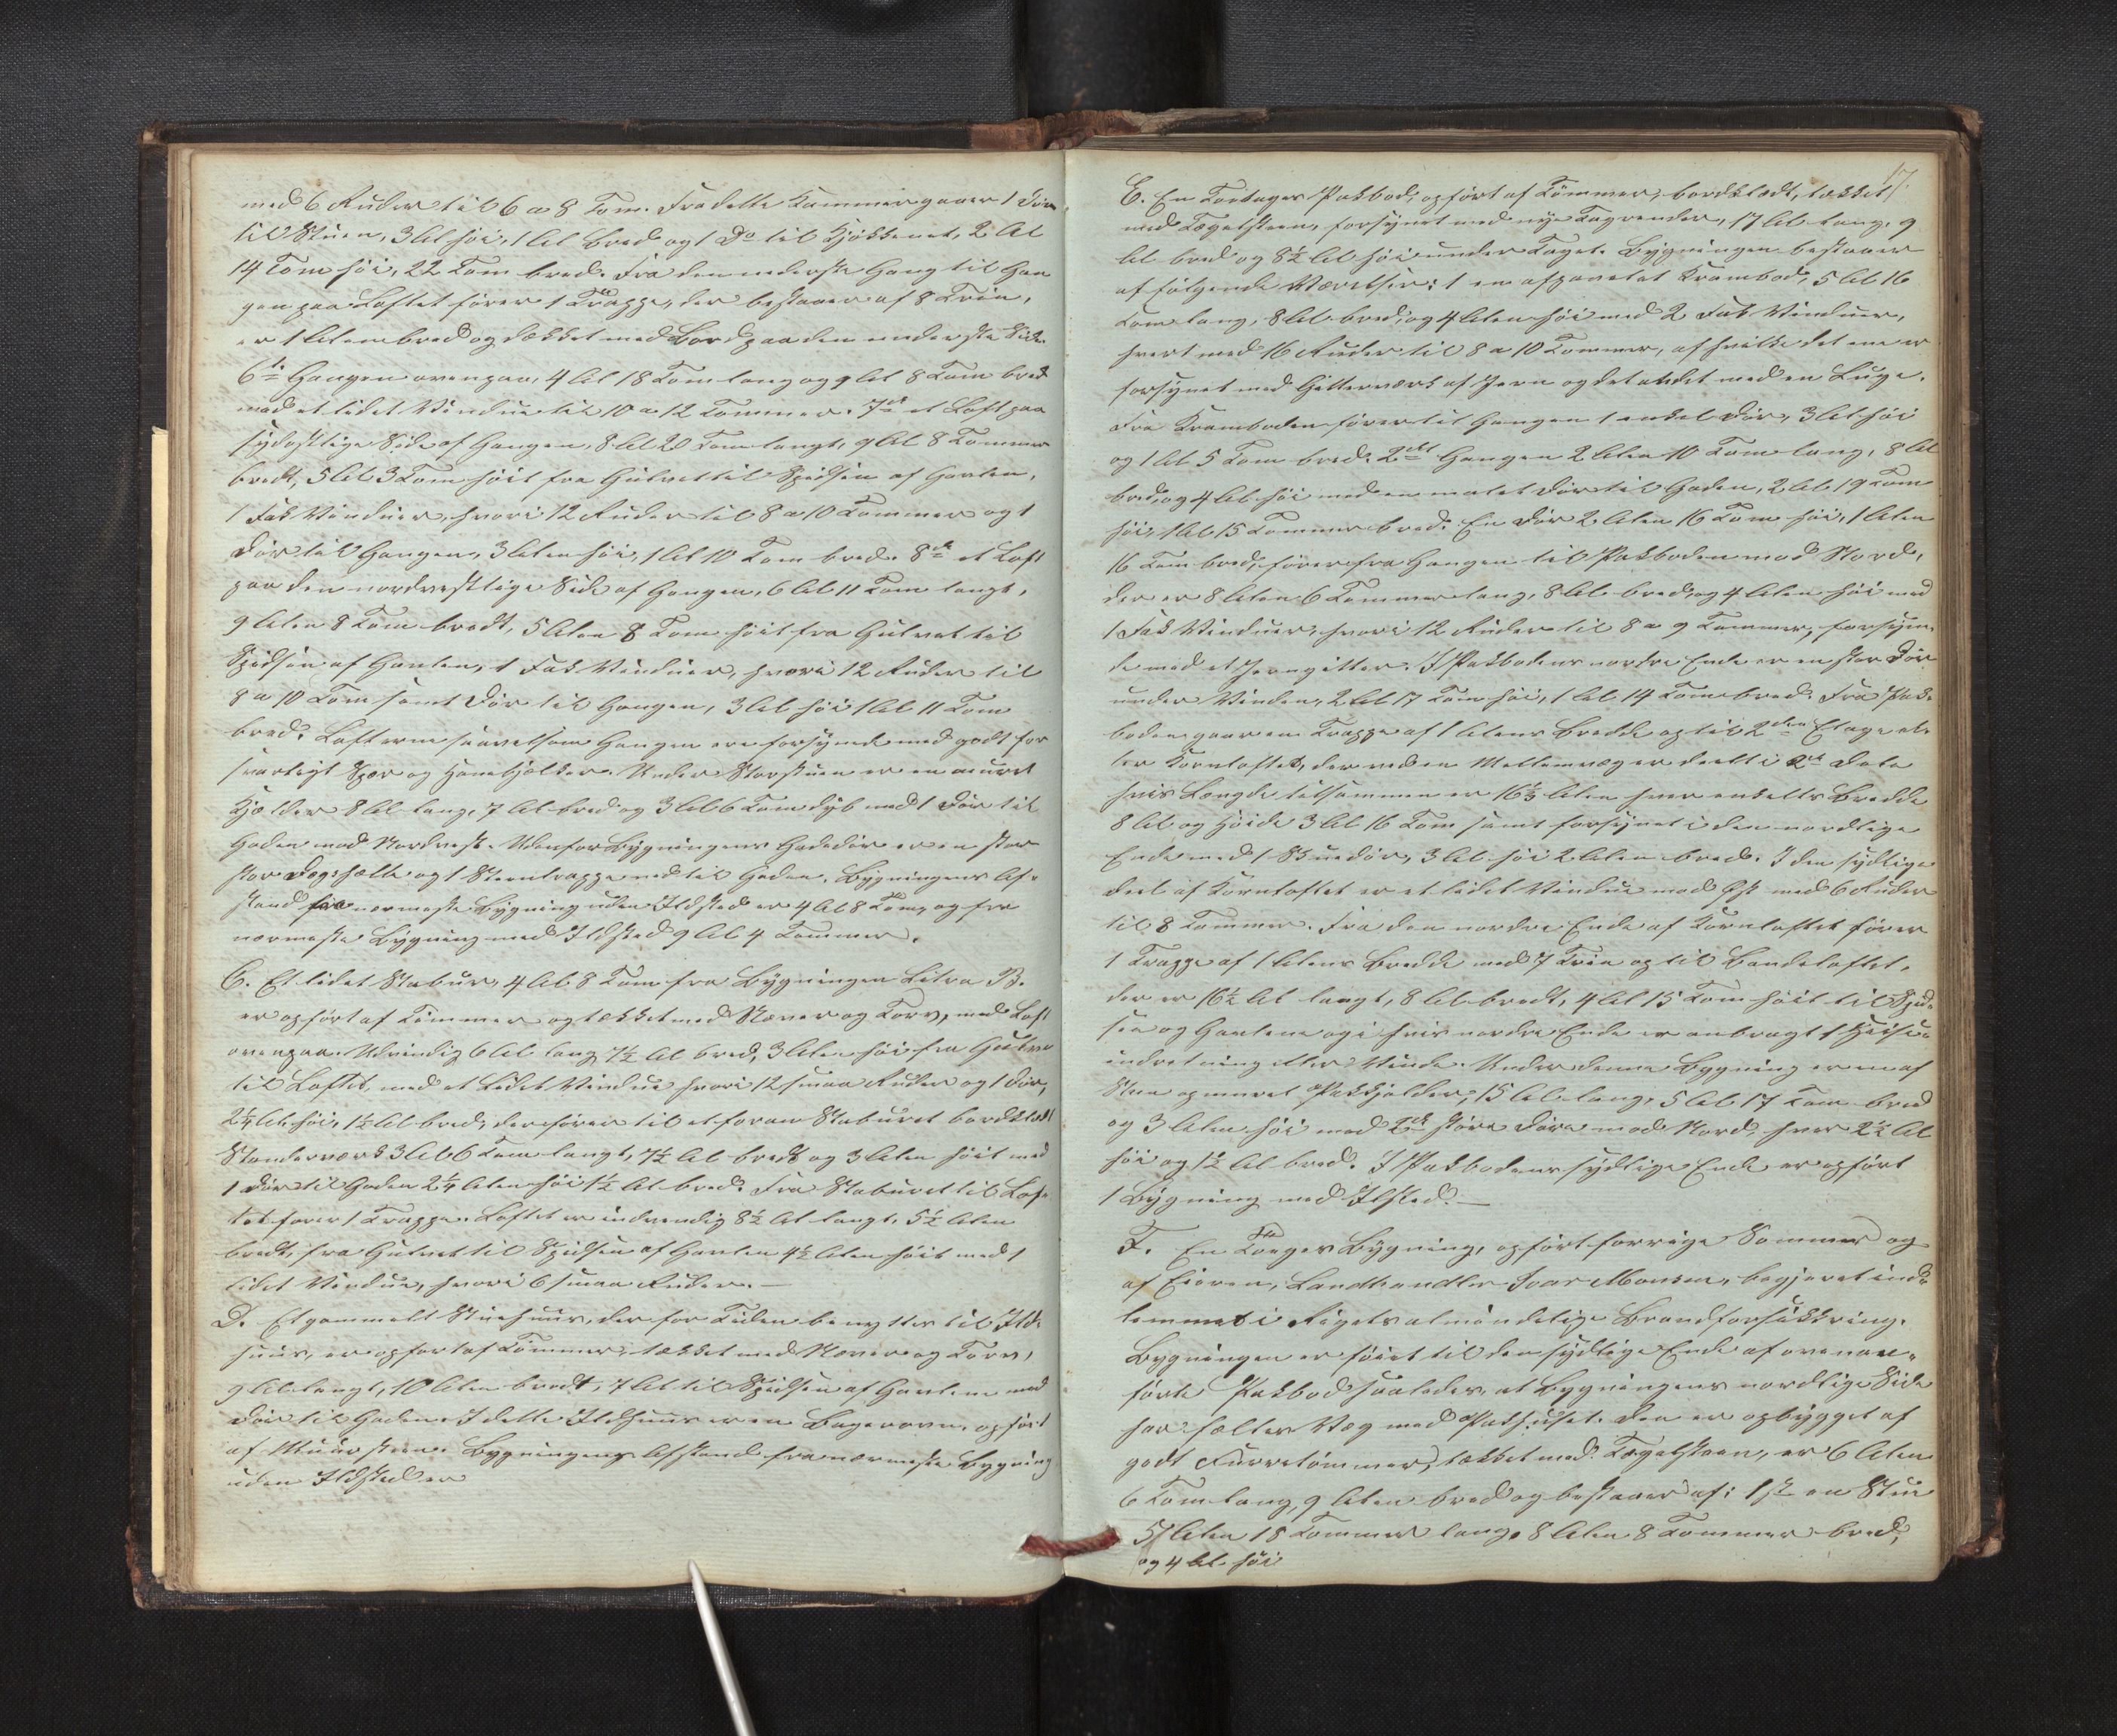 med 6 Ruder til 6 a 8 Tom. Fra dette Kammer gaaer 1 Dør
til Stuen, 3 Al høi, 1 Al bred og 1 Do til Kjøkkenet, 2 Al
14 Tom høi, 22 Tom bred. Fra den nederste Gang til Gan
gen paa Loftet fører 1 Trappe, der bestaaer af 8 Trin,
er 1 Alen bred og dækket med Bord paa den underste Side
6te Gangen ovenpaa, 4 Al 18 Tom lang og 9 Al 8 Tom bred
med et lidet Vindue til 10 a 12 Tommer. 7de et Loft paa
sydøstlige Side af Gangen, 8 Al 20 Tom langt, 9 Al 8 Tommer
bredt, 5 Al 3 Tom høit fra Gulvet til Spidsen af Gavlen,
1 Fak Vinduer, hvori 12 Ruder til 8 a 10 Tommer og 1
Dør til Gangen, 3 Alen høi, 1 Al 10 Tom bred. 8de et Loft
paa den nordvestlige Side af Gangen, 6 Al 11 Tom langt,
9 Alen 8 Tom bredt, 5 Alen 8 Tom høit fra Gulvet til
Spidsen af Gavlen, 1 Fak Vinduer, hvori 12 Ruder til
8 a 10 Tom samt Dør til Gangen, 3 Al høi 1 Al 11 Tom
bred. Lofterne saavelsom Gangen ere forsynede med godt for
svarligt Spær og Hanebjælker. Under Storstuen er en muret
Kjælder 8 Al lang, 7 Al bred og 3 Al 6 Tom dyb med 1 Dør til
Gaden mod Nordvest. Udenfor Bygningens Gadedør er en stor
stor Døgshælle og 1 Steentrappe ned til Gaden. Bygningens Af-
stand fra nærmeste Bygning uden Ildsted er 4 Al 8 Tom, og fra
nærmeste Bygning med Ildsted 9 Al 4 Tommer.
C. Et lidet Stabur, 4 Al 8 Tom fra Bygningen Litra B.
er opført af Tømmer og tækket med Næver og Torv, med Loft
ovenpaa. Udvendig 6 Al lang 7½ Al bred, 3 Alen høi fra Gulvet
til Loftet, med et lidet Vindue hvori 12 smaa Ruder og 1 Dør,
2¼ Al høi, 1½ Al bred, der fører til et foran Staburet bordklædt
Standerværk 3 Al 6 Tom langt, 7½ Al bredt og 3 Alen høit med
1 Dør til Gaden 2¼ Alen høi 1½ Al bred. Fra Staburet til Lof-
tet fører 1 Trappe. Loftet er indvendig 8½ Al langt, 5½ Alen
bredt, fra Gulvet til Spidsen af Gavlen 4½ Alen høit med 1
lidet Vindue, hvori 6 smaa Ruder. —
D. Et gammelt Stuehuus, der for Tiden benyttes til Ild-
huus, er opført af Tømmer, tækket med Næver og Torv,
9 Al langt, 10 Alen bredt, 7 Al til Spidsen af Gavlene med
Dør til Gaden. I dette Ildhuus er en Bagerovn, opført
af Muursteen. Bygningens Afstand fra nærmeste Bygning
uden Ildsted er
17.
E. En Toetages Pakbod, opført af Tømmer, bordklædt, tækket
med Tegelsteen, forsynet med nye Tagrender, 17 Al lang, 9
Al bred og 8½ Al høi under Taget. Bygningen bestaaer
af følgende Værelser: 1 en afpanelet Krambod, 5 Al 16
Tom lang, 8 Al bred, og 4 Alen høi med 2 Fak Vinduer,
hvert med 16 Ruder til 8 a 10 Tommer, af hvilke det ene er
forsynet med Gitterværk af Jern og det andet med en Luge.
Fra Kramboden fører til Gangen 1 enkel Dør, 3 Al høi
og 1 Al 5 Tom bred. 2det Gangen 2 Alen 10 Tom lang, 8 Al
bred, og 4 Al høi med en malet Dør til Gaden, 2 Al 19 Tom
høi, 1 Al 15 Tommer bred. En Dør 2 Alen 16 Tom høi, 1 Alen
16 Tom bred, fører fra Gangen til Pakboden mod Nord,
der er 8 Alen 6 Tommer lang, 8 Al bred, og 4 Alen høi med
1 Fak Vinduer, hvori 12 Ruder til 8 a 9 Tommer, forsyne-
de med et Jerngitter. I Pakbodens nordre Ende er en stor Dør
under Vinden, 2 Al 17 Tom høi, 1 Al 14 Tom bred. Fra Pak-
boden gaar en Trappe af 1 Alens Bredde op til 2den Etage el-
ler Kornloftet, der ved en Mellemvæg er deelt i 2de Dele
hvis Længde tilsammen er 16½ Alen hver enkelts Bredde
8 Al og Høide 3 Al 16 Tom samt forsynet i den nordlige
Ende med 1 Buedør, 3 Al høi 2 Alen bred. I den sydlige
Deel af Kornloftet er et lidet Vindue mod Øst med 6 Ruder
til 8 Tommer. Fra den nordre Ende af Kornloftet fører
1 Trappe af 1 Alens Bredde med 7 Trin op til Bandeloftet,
der er 16½ Al langt, 8 Al bredt, 4 Al 15 Tom høit til Spid-
sen og Gavlene og i hvis nordre Ende er anbragt 1 Heise-
indretning eller Vinde. Under denne Bygning er en af
Steen opmuret Pakkjelder, 15 Al lang, 5 Al 17 Tom bred
og 3 Alen høi med 2de store Døre mod Nord, hver 2½ Al
høi og 1½ Al bred. I Pakbodens sydlige Ende er opført
1 Bygning med Ildsted. —
F. En Toetages Bygning, opført forrige Sommer og
af Eieren, Landhandler Ivar Monsen, begjæret ind-
lemmet i Rigets almindelige Brandforsikkring.
Bygningen er føiet til den sydlige Ende af ovenan-
førte Pakbod saaledes, at Bygningens nordlige Side
har fælles Væg med Pakhuset. Den er opbygget af
godt Furretømmer, tækket med Tegelsteen, er 6 Alen
6 Tom lang, 9 Alen bred og bestaaer af: 1ste en Stue
5 Alen 18 Tommer lang, 8 Alen 8 Tommer bred,
og 4 Al høi